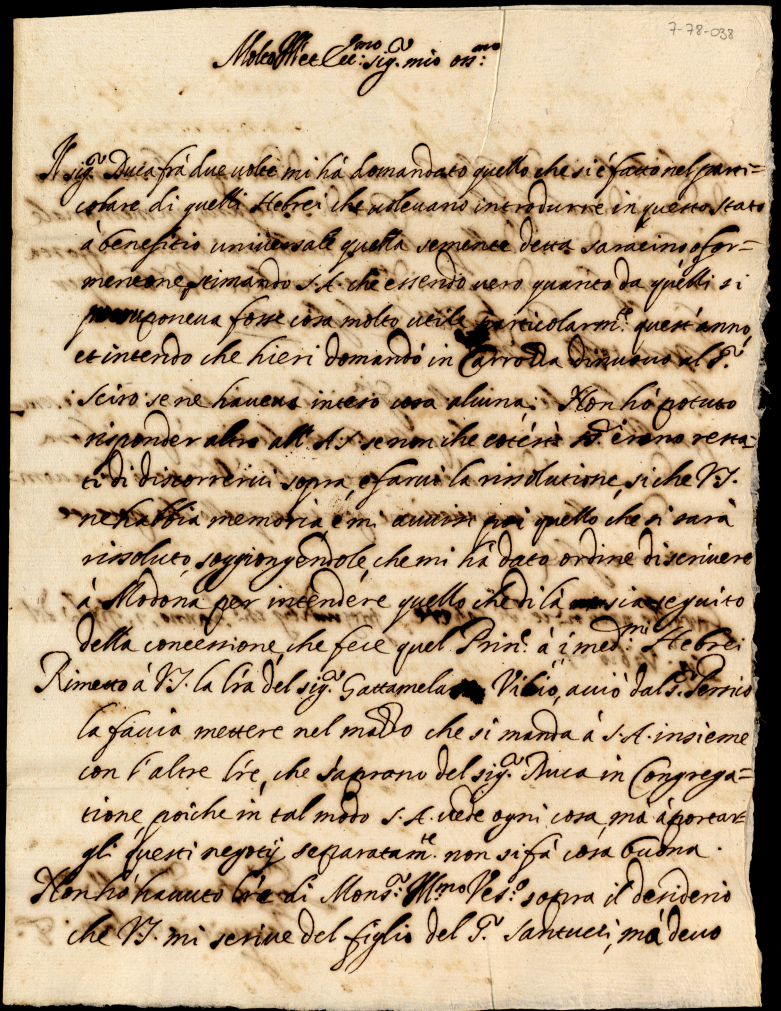 7-78-038
Molto Ill:re et Ecc:mo sig:r mio oss:mo
Il sig:r Duca frà due volte mi hà domandato quello che si è fatto nel parti=
colare di quelli Hebrei che volevano introdurre in questo stato
à benefitio universale quella semente detta saracino ò for=
mentone, stimando S.A. che essendo vero quanto da quelli si
proponeva fosse cosa molto utile particolarm:te quest'anno,
et intendo che hieri domandò in Carrozza di nuovo al S.r
Sciro se ne haveva inteso cosa alcuna. Non hò potuto
risponder altro all'A.S. se non che erano resta=
ti di discorrervi sopra, e farvi la rissolutione, si che V.S.
ne habbia memoria, e mi avvisi poi quello, che si sarà
rissoluto, soggiongendole, che mi hà dato ordine di scrivere
à Modona per intendere quello che di là sia seguito
della concessione, che fece quel Prin:e à i med:mi Hebrei
Rimetto à V.S. la l'ra del sig:r Gattamela Vibio, acciò dal S.r Persio
la facia mettere nel mazzo che si manda à S.A. insieme
con l'altre l're, che s'aprano del sig:r Duca in Congrega=
tione poiche in tal modo S.A. vede ogni cosa, mà à portar=
gli questi negotij separatam:te non si fà cosa buona.
Non hò havuto l're di Mons:r Ill:mo Ves:o sopra il desiderio
che V.S. mi scrive del figlio del S.r Santucci, mà devo